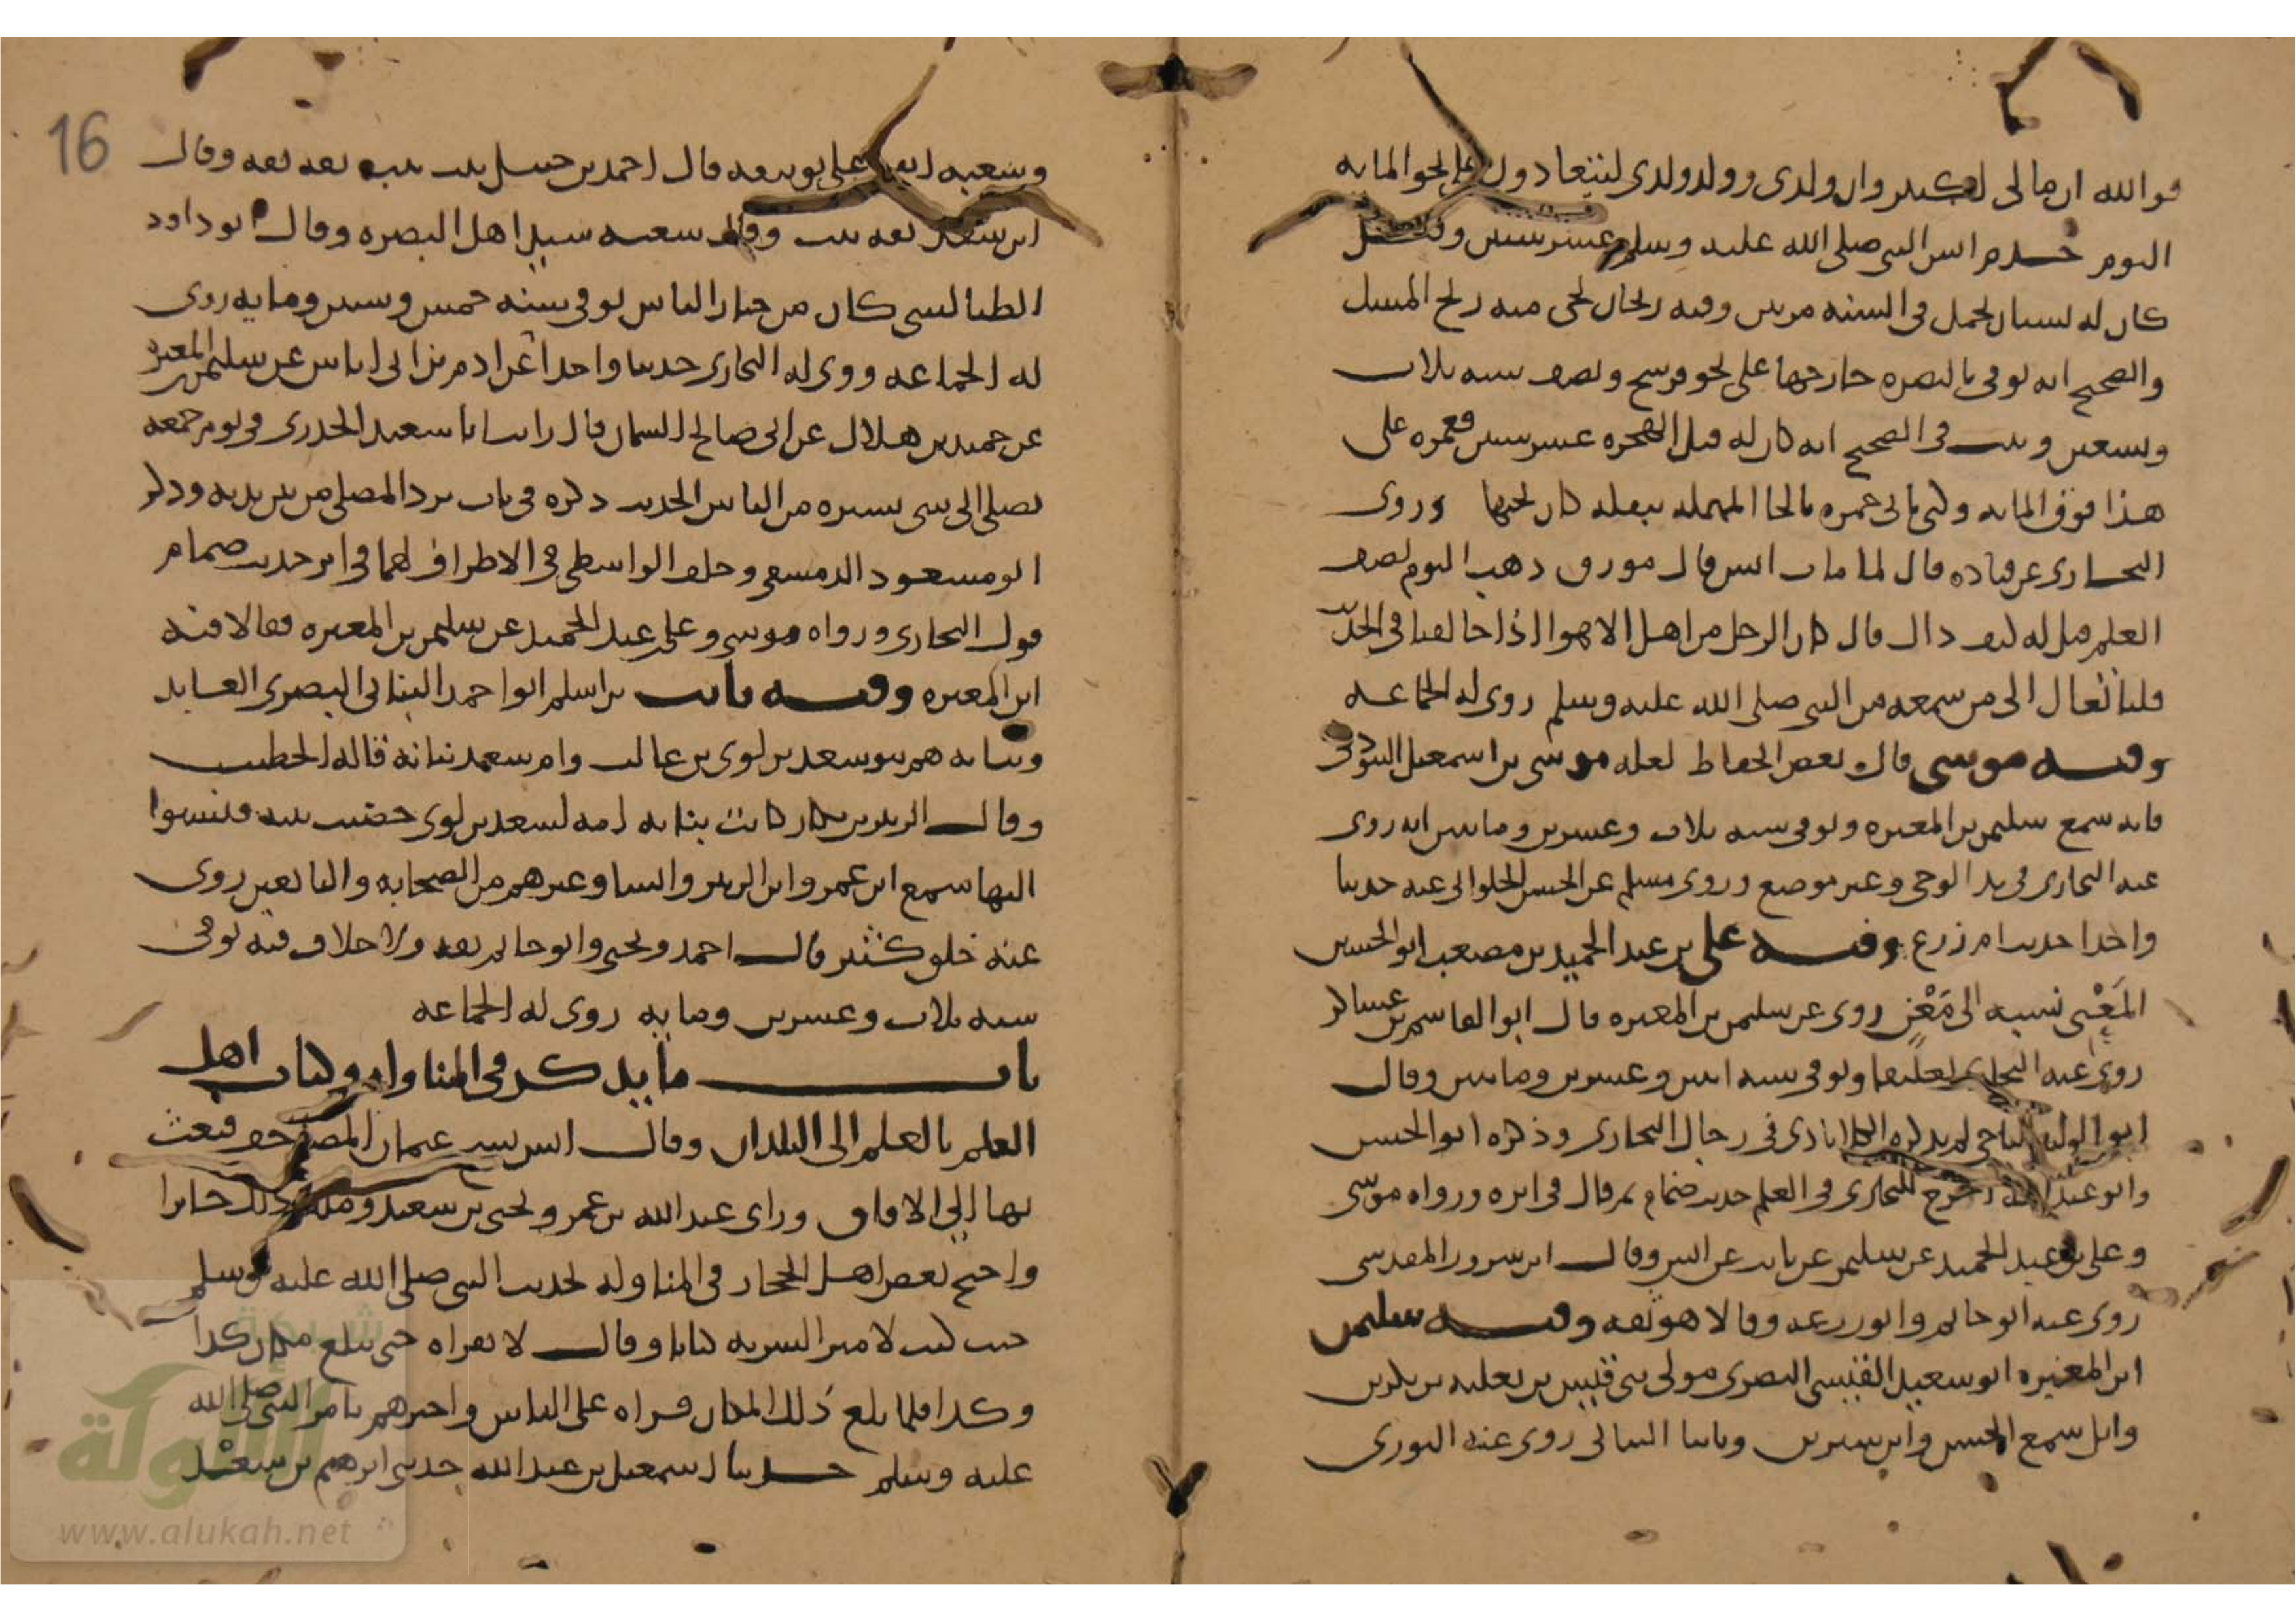 فوالله ان مالى لكثير وان ولدى وولد ولدى ليتعادون على نحو المايه
اليوم خدم انس النبى صلى الله عليه وسلم عشر سنين وقيل
كان له بستان يحمل فى السنه مرتين وفيه ريحان يجى منه ريح المسك
والصحيح انه توفى بالبصره خارجها على نحو فرسخ ونصف سنه ثلاث
وتسعين وثبت فى الصحيح انه كان له قبل الهجره عشر سنين فعمره على
هذا فوق المايه وكنى بابى حمزه بالحا المهمله ببقله كان يحبها وروى
البخارى عن قتاده قال لما مات انس قال مورق ذهب اليوم نصف
العلم قيل له كيف ذاك قال كان الرجل من اهل الاهوا اذا خالفنا فى الحديث
قلنا تعال الى من سمعه من النبى صلى الله عليه وسلم روى له الجماعه
وفيه موسى قال بعض الحفاظ لعله موسى بن اسمعيل التبوذكى
فانه سمع سليمن بن المغيره وتوفى سنه ثلاث وعشرين ومايتين انه روى
عنه البخارى فى بدا الوحى وغير موضع وروى مسلم عن الحسن الحلوانى عنه حديثا
واحدا حديث ام زرع وفيه على بن عبد الحميد بن مصعب ابو الحسين
المَعْنى نسبه الى مَعْنٍ روى عن سليمن بن المغيره قال ابو القاسم بن عساكر
روى عنه البخارى تعليقا وتوفى سنه اثنين وعشرين ومايتين وقال
ابو الوليد الباجى لم يذكره الكلاباذى فى رجال البخارى وذكره ابو الحسن
وابو عبد الله اخرج البخارى فى العلم حديث ضمام ثم قال فى اثره ورواه موسى
وعلى بن عبد الحميد عن سليمن عن ثابت عن انس وقال ابن سرور المقدسى
روى عنه ابو حاتم وابو زرعه وقالا هو ثقه وفيه سليمن
ابن المغيره ابو سعيد القيسى البصرى مولى بنى قيس بن ثعلبه بن بكر بن
وايل سمع الحسن وابن سيرين وثابتا البنانى روى عنه الثورى
16
وشعبه اتفقا على توثيقه قال احمد بن حنبل ثبت ثبت ثقه ثقه وقال
ابن سعد ثقه ثبت وقال شعبه سيد اهل البصره وقال ابو داود
الطيالسى كان من خيار الناس توفى سنه خمس وستين ومايه روى
له الجماعه وروى له البخارى حديثا واحدا عن ادم بن ابى اياس عن سليمن بن المغيره
عن حميد بن هلال عن ابى صالح السمان قال رايت ابا سعيد الخدرى فى يوم جمعه
يصلى الى شى يستره من الناس الحديث ذكره فى باب يرد المصلى من بين يديه وذكر
ابو مسعود الدمشقى وخلف الواسطى فى الاطراف لهما فى اثر حديث ضمام
قول البخارى ورواه موسى وعلى بن عبد الحميد عن سليمن بن المغيره فقالا فيه
ابن المغيره وفيه ثابت بن اسلم ابو احمد البنانى البصرى العابد
وبنانه هم بنو سعد بن لوى بن غالب وام سعد بنانه قاله الخطيب
وقال الزبير بن بكار كانت بنانه امه لسعد بن لوى حضنت بنيه فنسبوا
اليها سمع ابن عمر وابن الزبير وانسا وغيرهم من الصحابه والتابعين روى
عنه خلق كثير قال احمد ويحيى وابو حاتم ثقه ولا خلاف فيه توفى
سنه ثلاث وعشرين ومايه روى له الجماعه
باب ما يذكر فى المناوله وكتاب اهل
العلم بالعلم الى البلدان وقال انس نسخ عثمان المصاحف فبعث
بها الى الافاق وراى عبد الله بن عمر ويحيى بن سعيد وملك ذلك جايزا
واحتج بعض اهل الحجاز فى المناوله بحديث النبى صلى الله عليه وسلم
حيث كتب لامير السريه كتابا وقال لا تقراه حتى تبلغ مكان كذا
وكذا فلما بلغ ذلك المكان قراه على الناس واخبرهم بامر النبى صلى الله
عليه وسلم حدثنا اسمعيل بن عبد الله حدثنى ابرهيم بن سعْد
شبكة
الألوكة
www.alukah.net